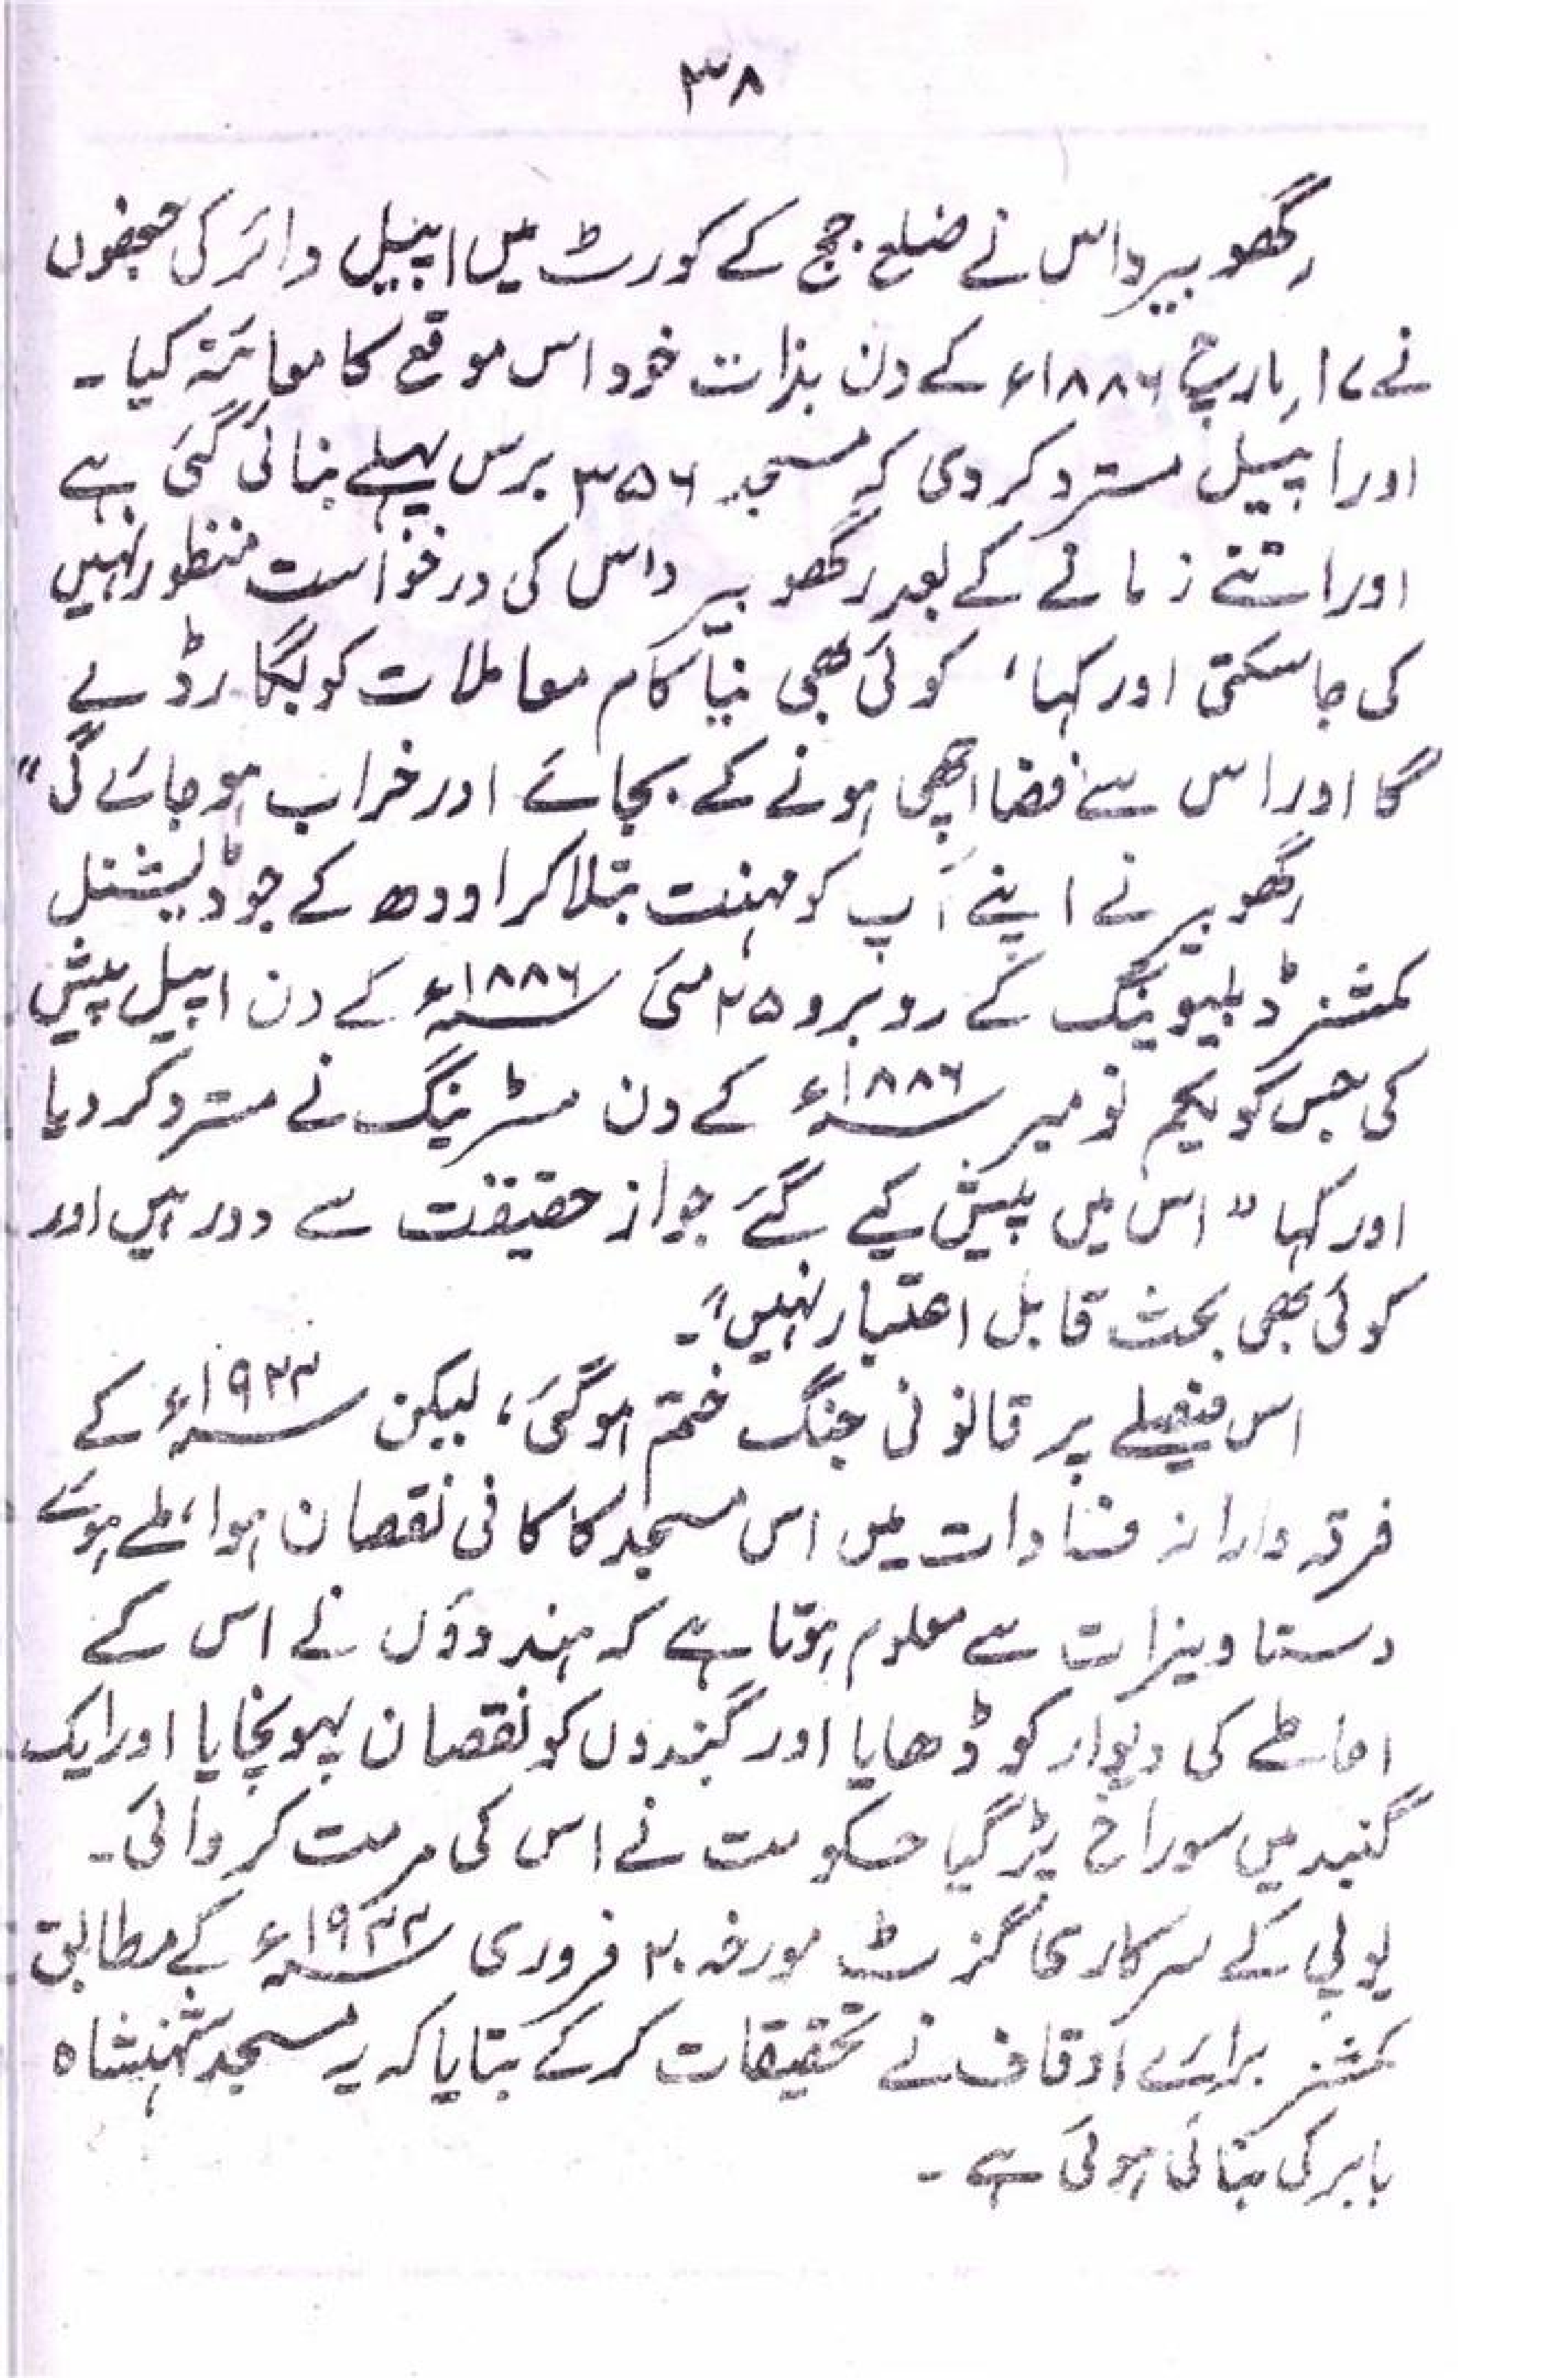 ۳۸
رگھوبیر داس نے ضلع جج کے کورٹ میں اپیل دائر کی جنھوں
نے ۱۷ مارچ ۱۸۸۶ء کے دن بذات خود اس موقع کا معائنہ کیا ۔
اور اپیل مسترد کر دی کہ مسجد ۳۵۶ برس پہلے بنائی گئی ہے
اور اتنے زمانے کے بعد رگھوبیر داس کی درخواست منظور نہیں
کی جا سکتی اور کہا، کوئی بھی نیا کام معاملات کو بگاڑ دے
گا اور اس سے فضا اچھی ہونے کے بجائے اور خراب ہو جائے گی"
رگھوبیر نے اپنے آپ کو مہنت بتلا کر اودھ کے جوڈیشنل
کمشنر ڈبلیو ینگ کے روبرو ۲۵ مئی ۱۸۸۶ء کے دن اپیل پیش
کی جس کو یکم نومبر ۱۸۸۶ء کے دن مسٹر ینگ نے مسترد کر دیا
اور کہا "اس میں پیش کیے گئے جواز حقیقت سے دور ہیں اور
کوئی بھی بحث قابل اعتبار نہیں"۔
اس فیصلے پر قانونی جنگ ختم ہو گئی، لیکن ۱۹۳۴ء کے
فرقہ وارانہ فسادات میں اس مسجد کا کافی نقصان ہوا، ملے ہوئے
دستاویزات سے معلوم ہوتا ہے کہ ہندوؤں نے اس کے
احاطے کی دیوار کو ڈھایا اور گنبدوں کو نقصان پہونچایا اور ایک
گنبد میں سوراخ پڑ گیا حکومت نے اس کی مرمت کروائی ۔
یوپی کے سرکاری گزٹ مورخہ ۲۰ فروری ۱۹۴۴ء کے مطابق
کمشنر برائے اوقاف نے تحقیقات کر کے بتایا کہ یہ مسجد شہنشاہ
بابر کی بنائی ہوئی ہے ۔